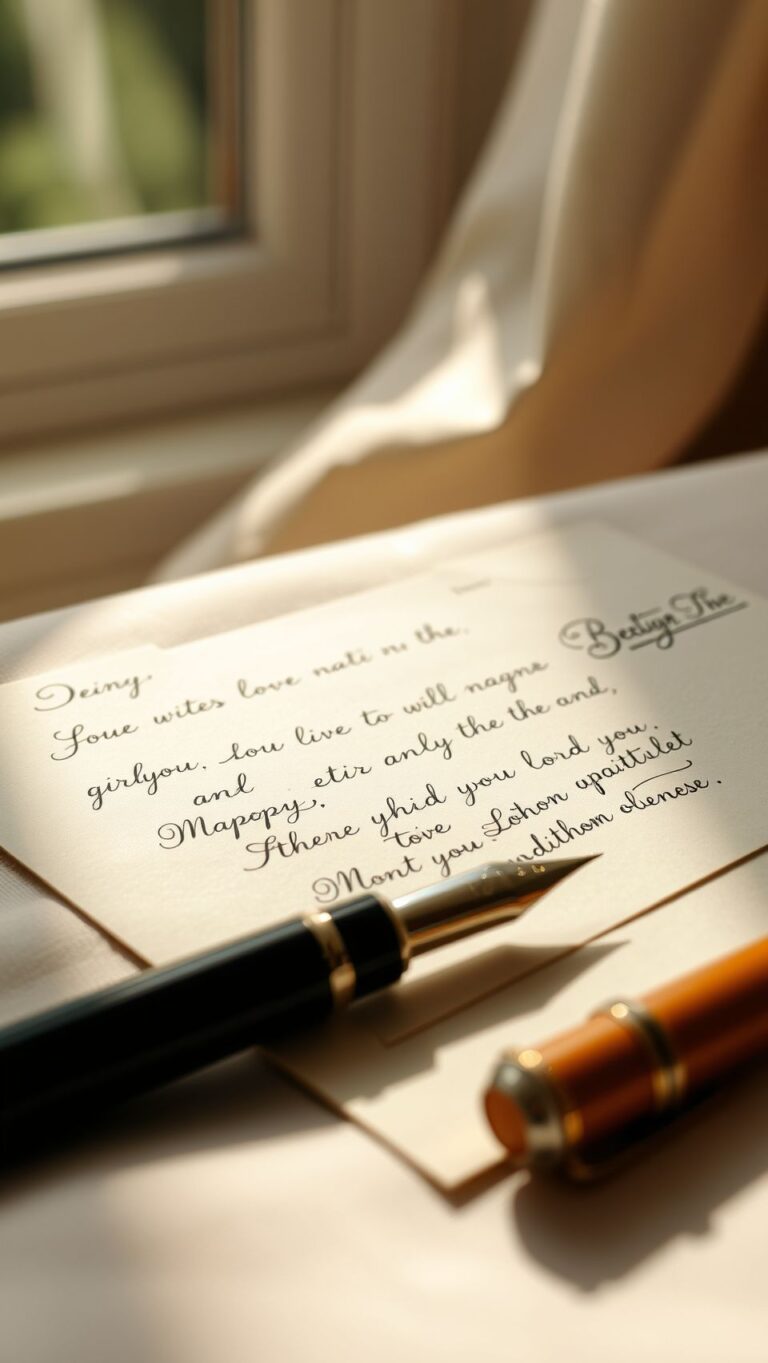 Deiny.
Beetign The
Soue wites love nati ns the.
girlyou. Sou live to will nagne
and etir anly the the and,
Mapopy.
Sthene yhid you lord you.
tove Lohon upaittulet
Mont you ndithom obenese.